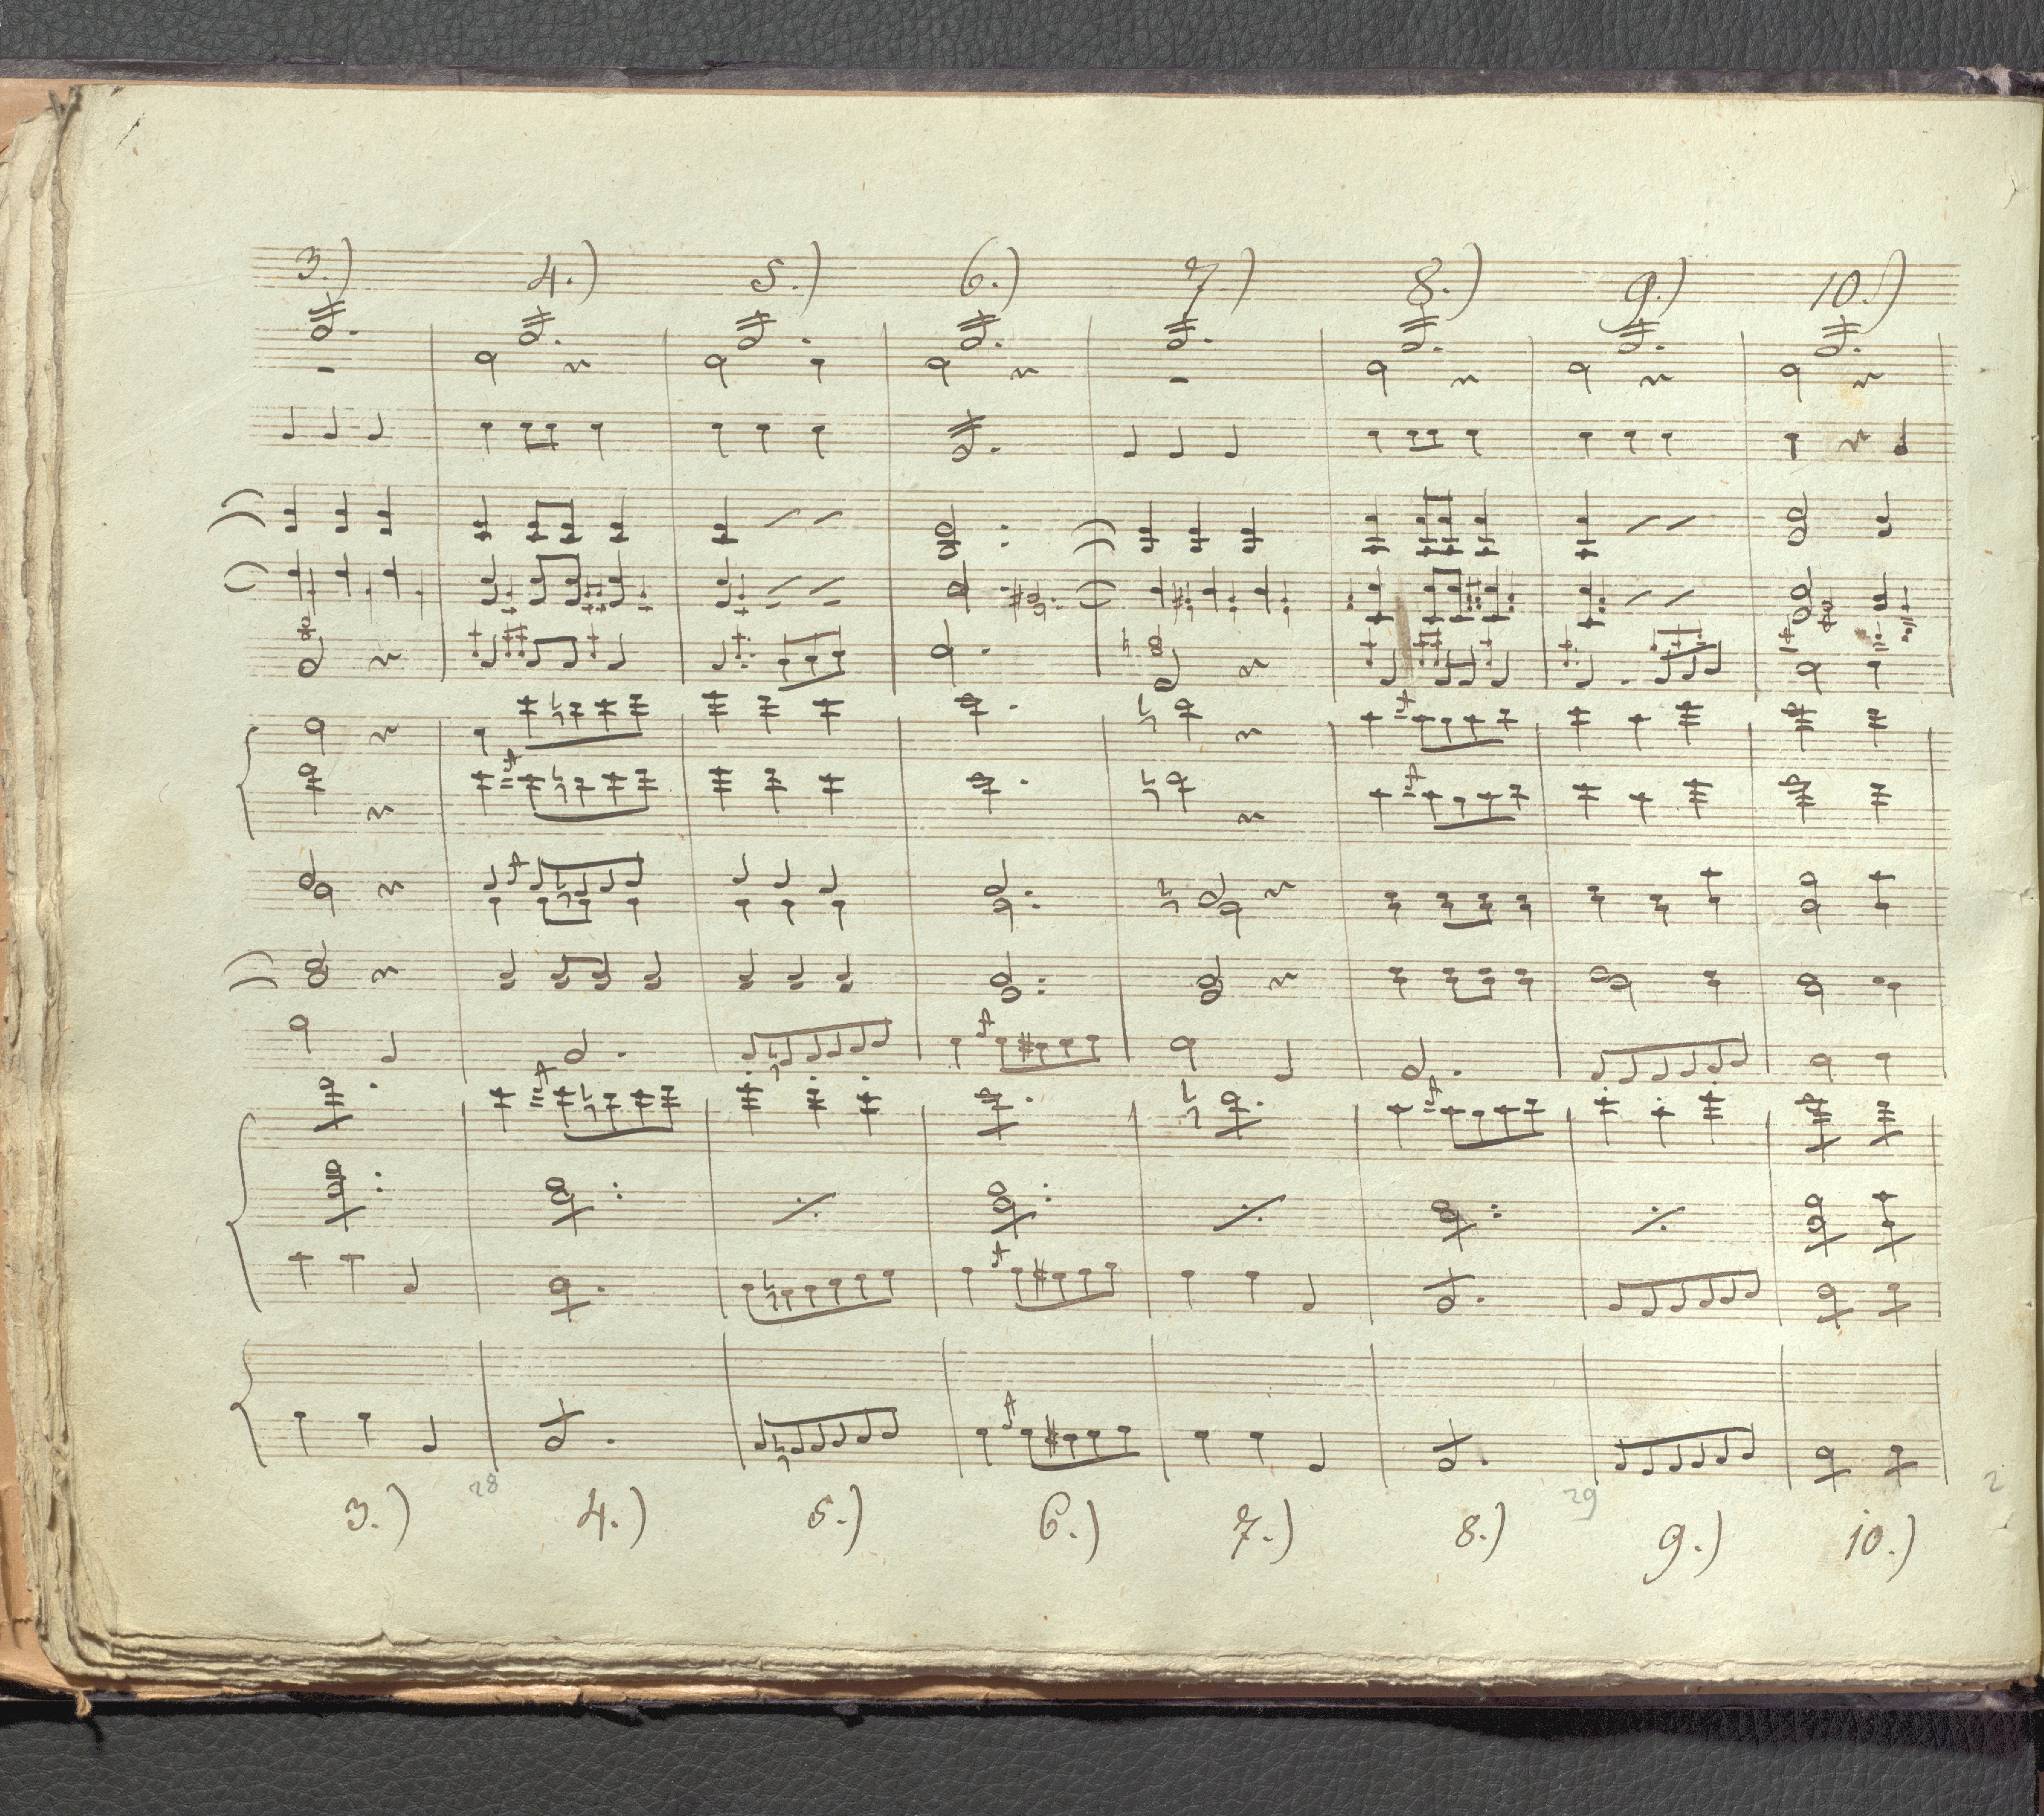 3.) 4.) 5.) 6.) 7.) 8.) 9.) 10.)
28 29 2
3.) 4.) 5.) 6.) 7.) 8.) 9.) 10.)